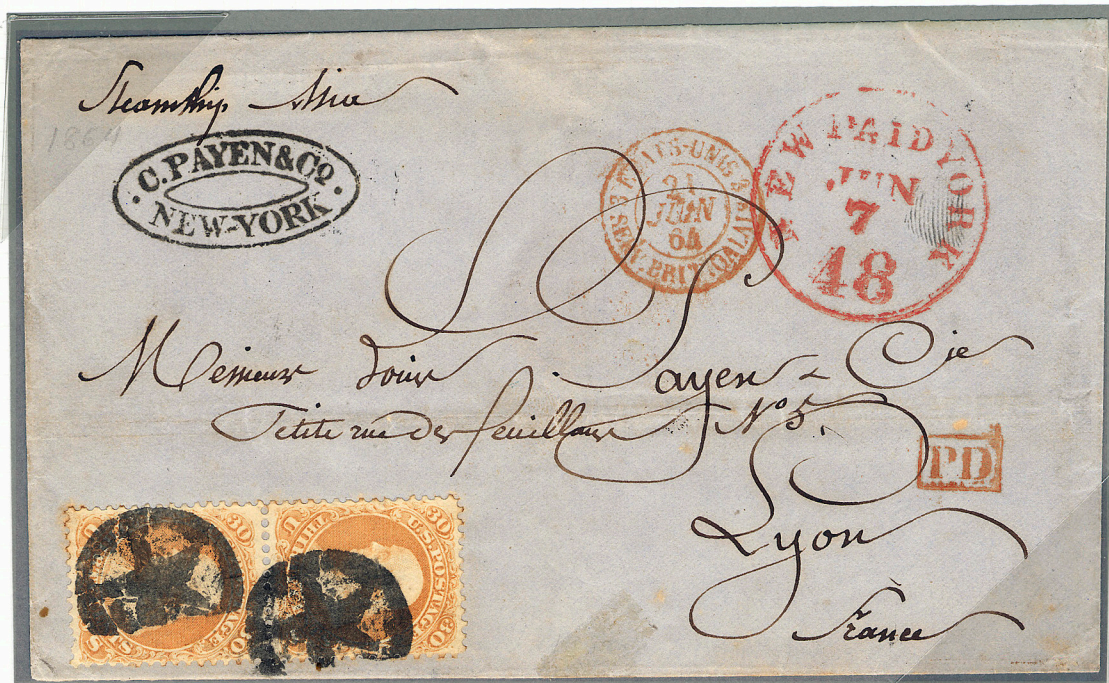 Steamship Asia
1864
C. PAYEN & Co.
NEW-YORK
3 ETATS-UNIS 3
SERV. BRIT. A CALAIS
21
JUIN
64
NEW PAID YORK
JUN
7
48
Messieurs Louis Payen & Cie
Petite rue des feuillans No 5.
PD
Lyon
France
30 U.S. POSTAGE 30